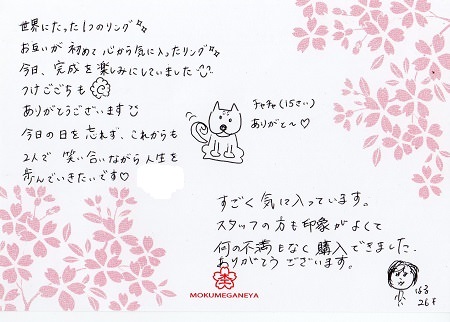 世界にたった1つのリング
お互いが初めて心から気に入ったリング
今日、完成を楽しみにしていました
つけごこちも
ありがとうございます
今日の日を忘れず、これからも
2人で笑い合いながら人生を
歩んでいきたいです♡
チャチャ(15さい)
ありがと〜♡
すごく気に入っています。
スタッフの方も印象がよくて
何の不満もなく購入できました。
ありがとうございます。
MOKUMEGANEYA